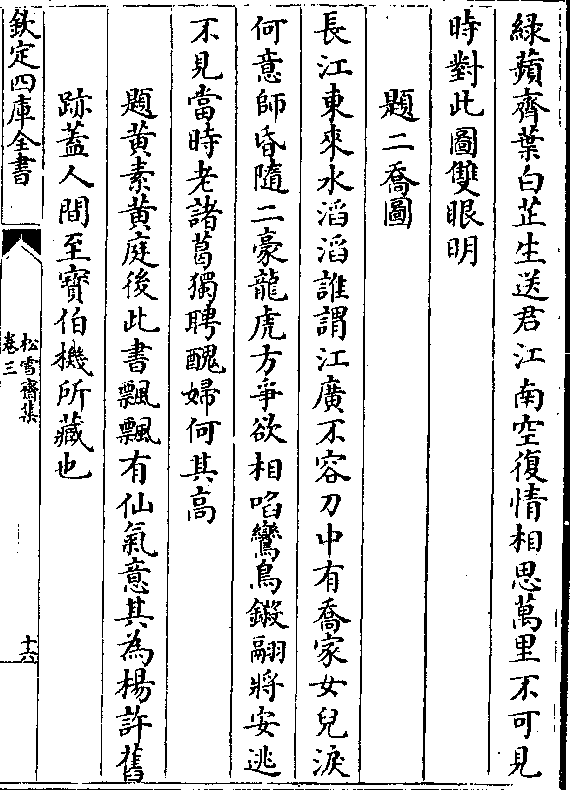 綠蘋齊葉白芷生送君江南空復情相思萬里不可見
時對此圖雙眼明
題二喬圖
長江東來水滔滔誰謂江廣不容刀中有喬家女兒淚
何意師昏隨二豪龍虎方爭欲相啗鸞鳥鎩翮將安逃
不見當時老諸葛獨聘醜婦何其高
題黃素黃庭後此書飄飄有仙氣意其為楊許舊
跡蓋人間至寶伯機所藏也
欽定四庫全書
松雪齋集
卷三
十六